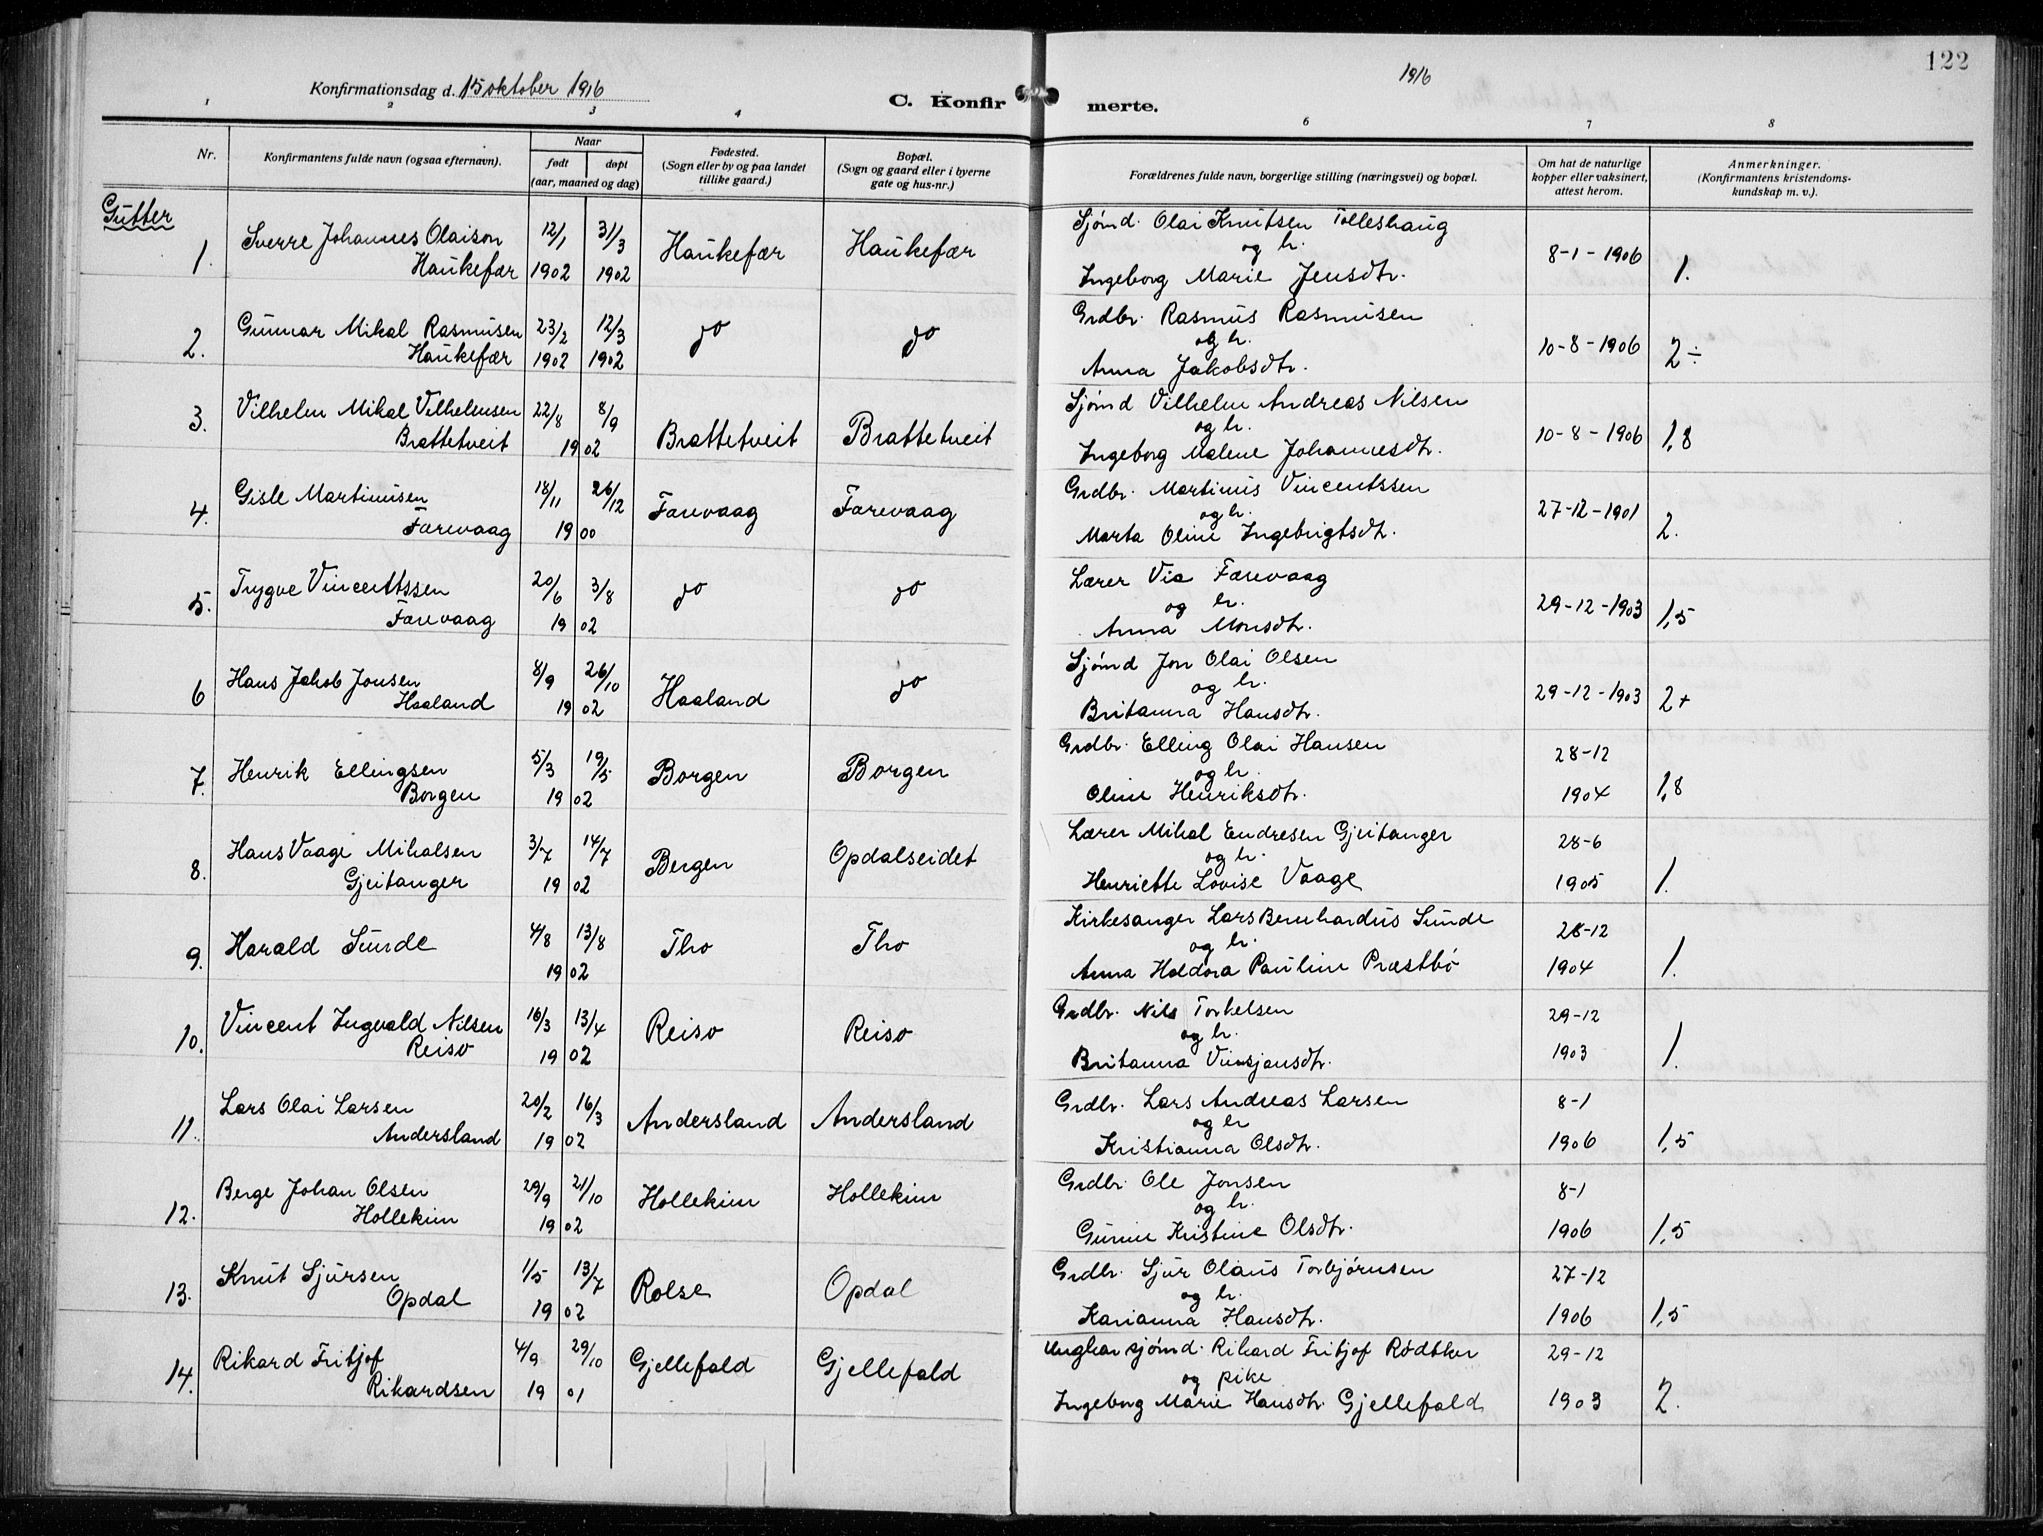 122
1916
Konfirmationsdag d. 15 oktober 1916
C. Konfirmerte.
1 2 3 4 6 7 8
Nr.
Konfirmantens fulde navn (ogsaa efternavn).
Naar
født døpt
(aar, maaned og dag)
Fødested.
(Sogn eller by og paa landet
tillike gaard.)
Bopæl.
(Sogn og gaard eller i byerne
gate og hus-nr.)
Forældrenes fulde navn, borgerlige stilling (næringsvei) og bopæl.
Om hat de naturlige
kopper eller vaksinert,
attest herom.
Anmerkninger.
(Konfirmantens kristendoms-
kundskap m. v.).
Gutter
1. Sverre Johannes Olaison 12/1 31/3 Haukefær Haukefær Sjömd. Olai Knutsen Tolleshaug
og h. 8-1-1906 1.
Haukefær 1902 1902 Ingeborg Marie Jensdtr.
2. Gunnar Mikal Rasmusen 23/2 12/3 do do Grdbr. Rasmus Rasmusen
og h. 10-8-1906 2÷
Haukefær 1902 1902 Anna Jakobsdtr.
3. Vilhelm Mikal Vilhelmsen 22/8 8/9 Brattetveit Brattetveit Sjömd Vilhelm Andreas Nilsen
og h. 10-8-1906 1,8
Brattetveit 1902 Ingeborg Malene Johannesdtr.
4. Gisle Martinusen 18/11 26/12 Færevaag Færevaag Grdbr. Martinus Vincentssen
og h. 27-12-1901 2.
Færevaag 1900 Marta Oline Ingebrigtsdtr.
5. Trygve Vincentssen 20/6 3/8 do do Lærer Via Færevaag
og h. 29-12-1903 1,5
Færevaag 1902 Anna Monsdtr.
6 Hans Jakob Jonsen 8/9 26/10 Haaland do Sjömd Jon Olai Olsen
og h. 29-12-1903 2+
Haaland 1902 Britanna Hansdtr.
7. Henrik Ellingsen 5/3 19/5 Borgen Borgen Grdbr. Elling Olai Hansen 28-12
og h. 1,8
Borgen 1902 Oline Henriksdtr. 1904
8. Hans Vaage Mikalsen 3/7 14/7 Bergen Opdalseidet Lærer Mikal Endresen Gjeitanger 28-6
og h. 1.
Gjeitanger 1902 Henriette Lovise Vaage 1905
9. Harald Sunde 4/8 13/8 Tho Tho Kirkesanger Lars Bernhardus Sunde 28-12
og h. 1.
1902 Anna Haldora Pauline Præstbö 1904
10. Vincent Ingvald Nilsen 16/3 13/4 Reiso Reiso Grdbr. Nils Torkelsen 29-12
og h. 1.
Reiso 1902 Britanna Vinsjansdtr. 1903
11. Lars Olai Larsen 20/2 16/3 Andersland Andersland Grdbr. Lars Andreas Larsen 8-1
og h 1,5
Andersland 1902 Kristianna Olsdtr. 1906
12. Berge Johan Olsen 29/9 21/10 Hollekim Hollekim Grdbr. Ole Jonsen 8-1
og h. 1,5
Hollekim 1902 Gurine Kristine Olsdtr. 1906
13. Knut Sjursen 1/5 13/7 Rolse Opdal Grdbr. Sjur Olaus Torbjörnsen 27-12
og h. 1,5
Opdal 1902 Karianna Hansdtr. 1906
14. Rikard Fritjof 4/9 29/10 Gjellefald Gjellefald Ungkar sjömd. Rikard Fritjof Rödtker 29-12
og pike 2.
Rikardsen 1901 Ingeborg Marie Hansdtr. Gjellefald 1903